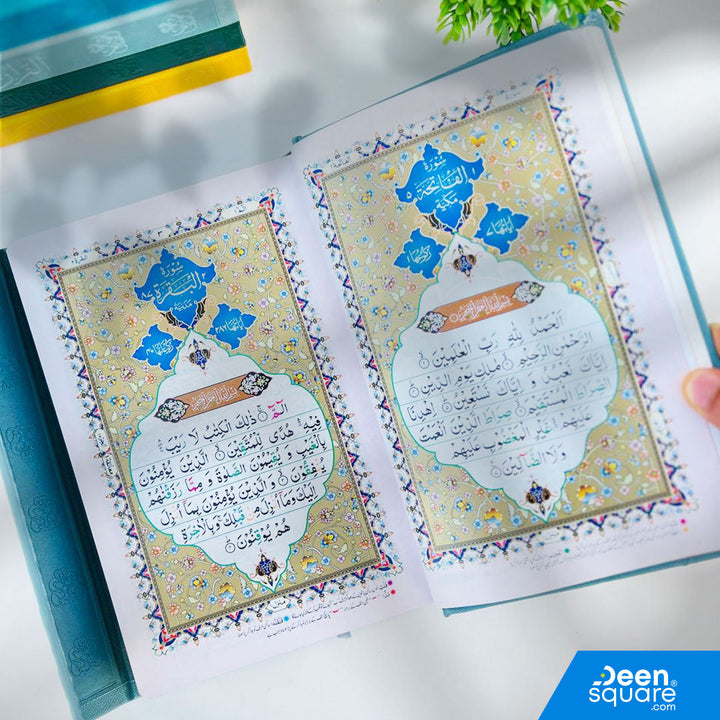 سُوْرَةُ
الْفَاتِحَةِ
مَكِّيَّةٌ
بِسْمِ اللّٰهِ الرَّحْمٰنِ الرَّحِيْمِ
اَلْحَمْدُ لِلّٰهِ رَبِّ الْعٰلَمِيْنَ
الرَّحْمٰنِ الرَّحِيْمِ مٰلِكِ يَوْمِ الدِّيْنِ
اِيَّاكَ نَعْبُدُ وَ اِيَّاكَ نَسْتَعِيْنُ اِهْدِنَا
الصِّرَاطَ الْمُسْتَقِيْمَ صِرَاطَ الَّذِيْنَ اَنْعَمْتَ
عَلَيْهِمْ غَيْرِ الْمَغْضُوْبِ عَلَيْهِمْ
وَلَا الضَّآلِّيْنَ
سُوْرَةُ
الْبَقَرَةِ
مَدَنِيَّةٌ
بِسْمِ اللّٰهِ الرَّحْمٰنِ الرَّحِيْمِ
الٓمّٓ ذٰلِكَ الْكِتٰبُ لَا رَيْبَ
فِيْهِ هُدًى لِّلْمُتَّقِيْنَ الَّذِيْنَ يُؤْمِنُوْنَ
بِالْغَيْبِ وَ يُقِيْمُوْنَ الصَّلٰوةَ وَ مِمَّا رَزَقْنٰهُمْ
يُنْفِقُوْنَ وَ الَّذِيْنَ يُؤْمِنُوْنَ بِمَآ اُنْزِلَ
اِلَيْكَ وَمَآ اُنْزِلَ مِنْ قَبْلِكَ وَ بِالْاٰخِرَةِ
هُمْ يُوْقِنُوْنَ
Deen
square
.com